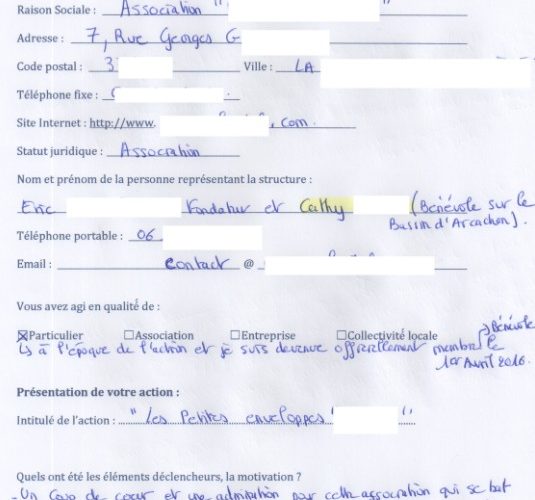 Raison Sociale : Association "
Adresse : 7, Rue Georges G
Code postal : 3 Ville : LA
Téléphone fixe :
Site Internet : http://www. . com.
Statut juridique : Association
Nom et prénom de la personne représentant la structure :
Eric Fondateur et Cathy (Bénévole sur le
Bassin d'Arcachon).
Téléphone portable : 06
Email : contact @
Vous avez agi en qualité de :
☒Particulier ☐Association ☐Entreprise ☐Collectivité locale
↳ à l'époque de l'action et je suis devenue officiellement membre Bénévole le
1er Avril 2016.
Présentation de votre action :
Intitulé de l'action : "Les Petites enveloppes "
Quels ont été les éléments déclencheurs, la motivation ?
- Un Coup de coeur et une admiration pour cette association qui se bat